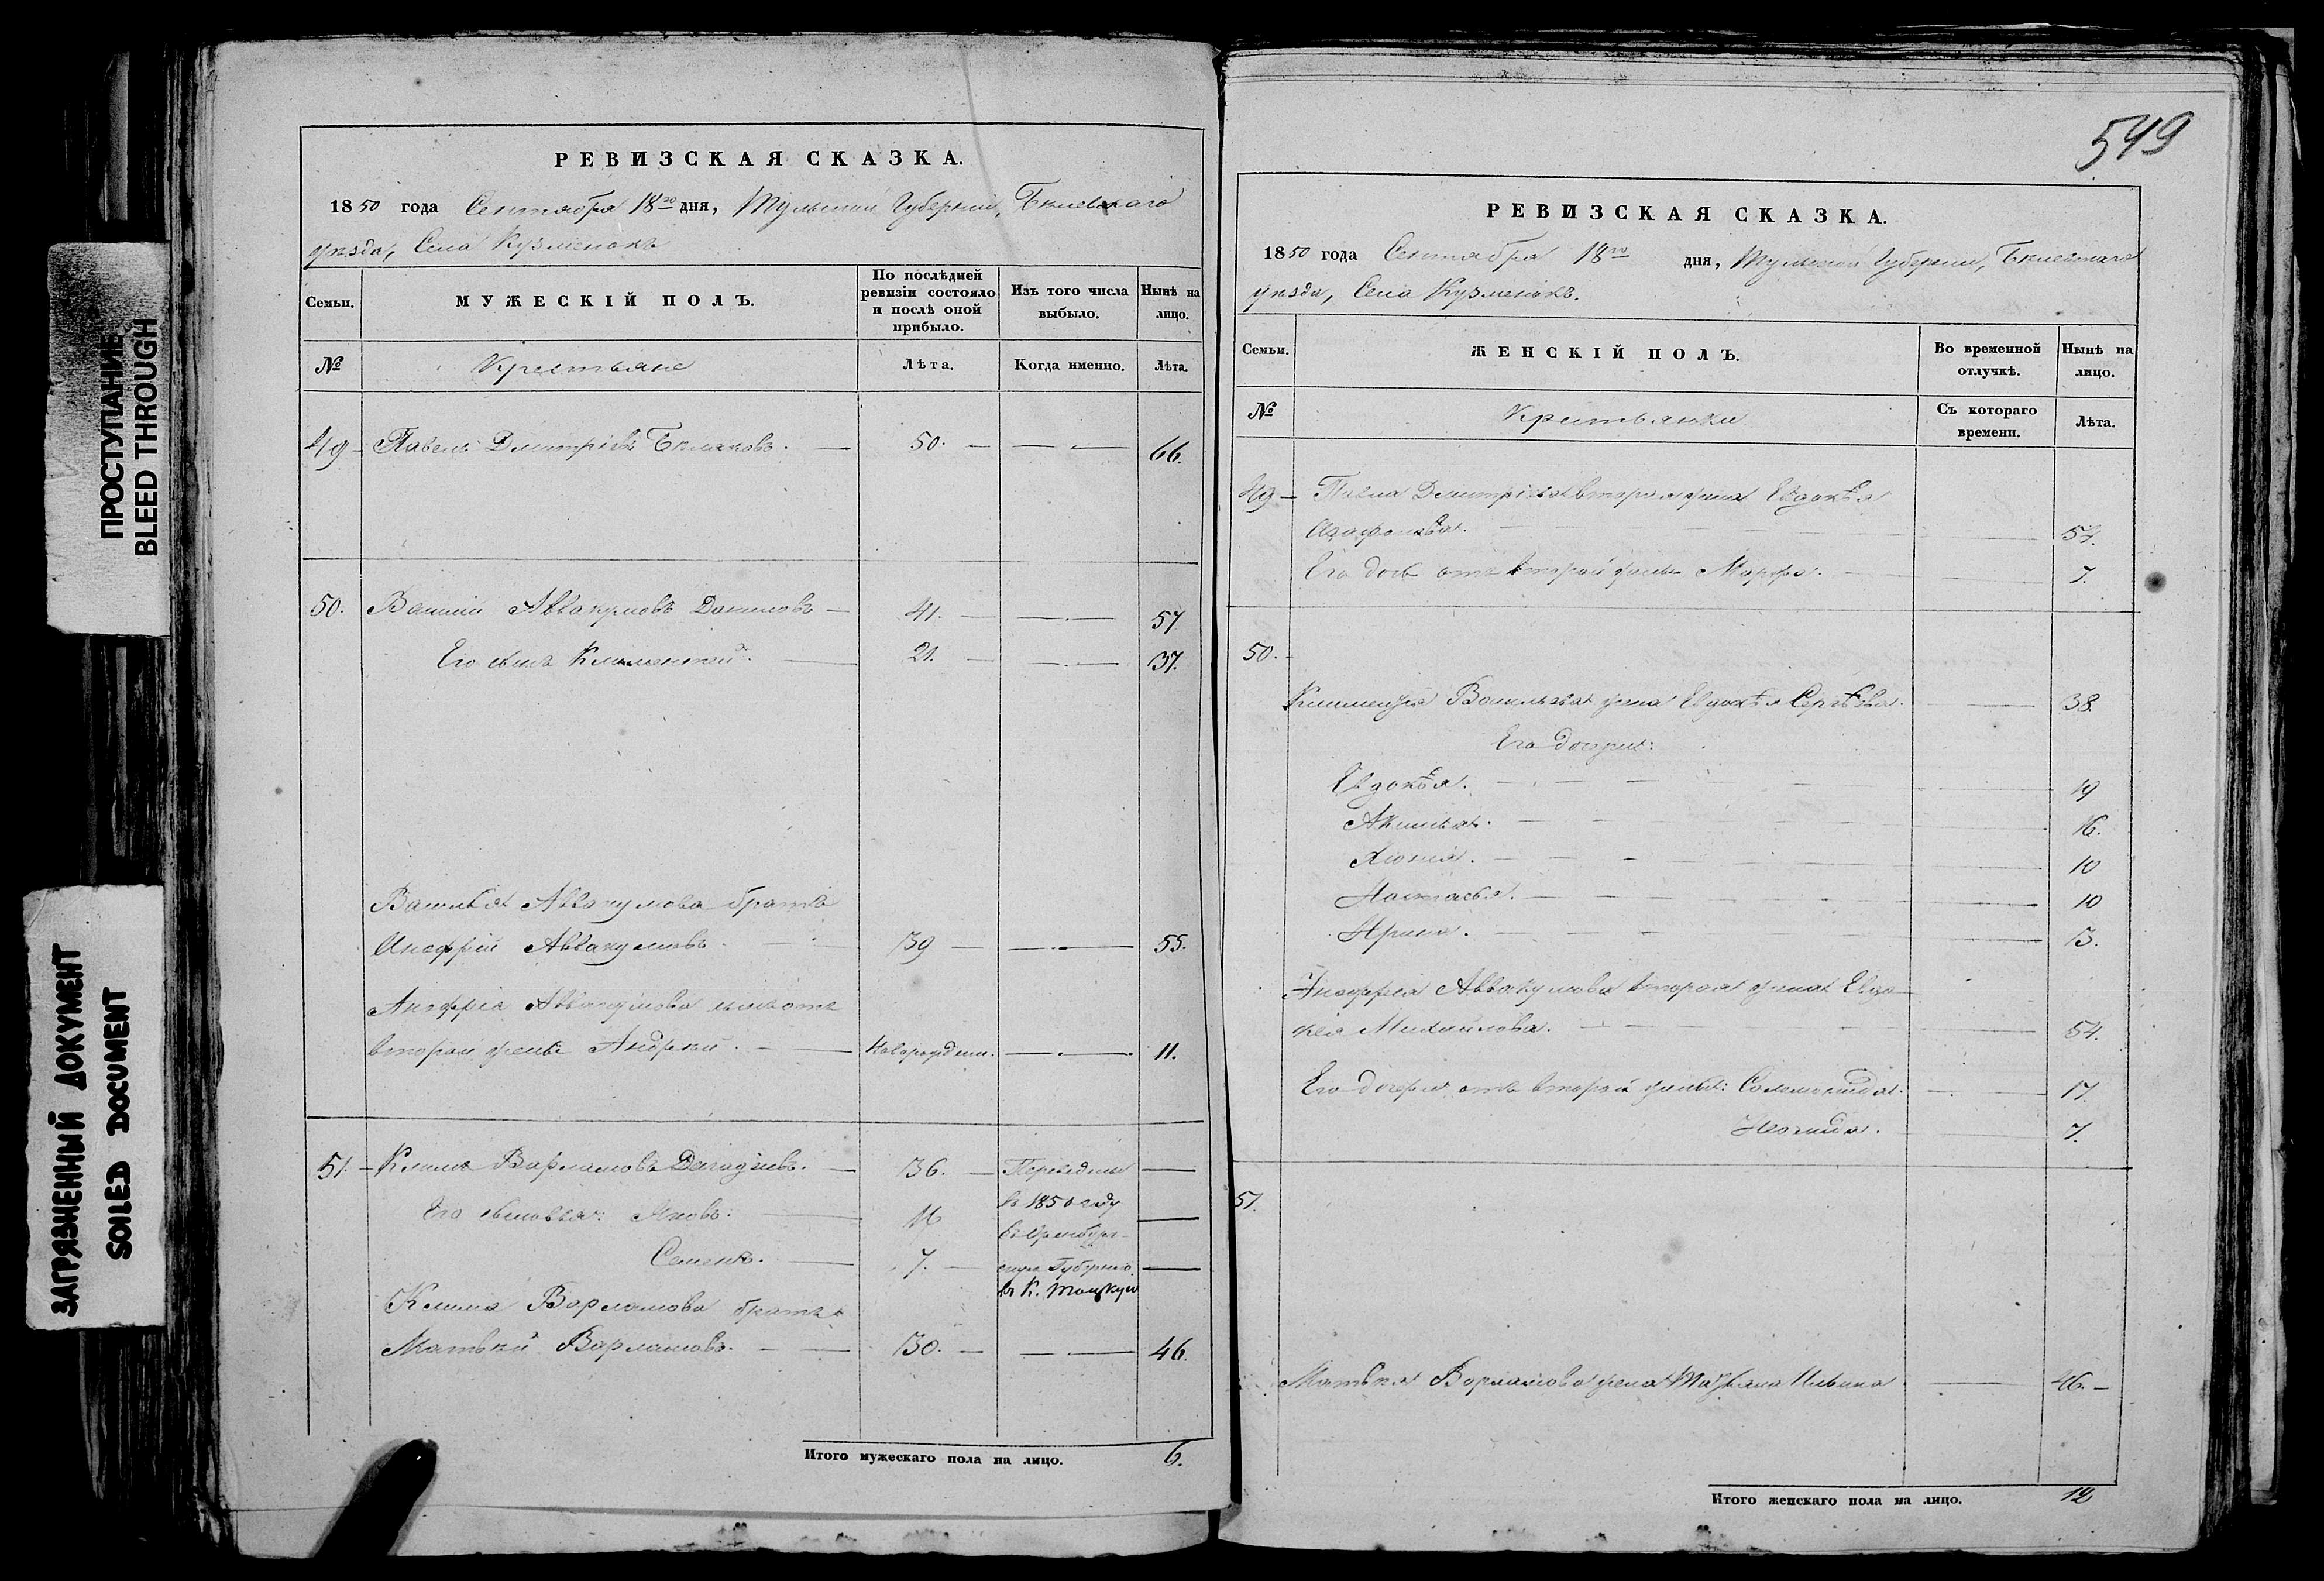 ПРОСТУПАНИЕ
BLEED THROUGH
ЗАГРЯЗНЕННЫЙ ДОКУМЕНТ
SOILED DOCUMENT
РЕВИЗСКАЯ СКАЗКА.
1850 года Сентября 18го дня, Тульской Губернии,
уезда, Села
Семьи.
МУЖЕСКІЙ ПОЛЪ.
По послѣдней ревизіи состояло и послѣ оной прибыло.
Изъ того числа выбыло.
Нынѣ на лицо.
№
Крестьяне
Лѣта.
Когда именно.
Лѣта.
49 Павелъ Дмитріевъ 50. 66.
50. Василий Аввакумовъ Даниловъ 41. 57
Его сынъ Климентий. 21. 37.
Василья Аввакумова братъ
Анофрій Аввакумовъ. 39 55.
Анофрія Аввакумова сынъ отъ
второй жены Андрей. Новорожден. 11.
51. Климъ Варламовъ 36. Переведены
в 1850 году
Его сыновья: Яковъ. 16 в Оренбург-
Семенъ. 7. скую Губернію
Клима Варламова братъ
Матвей Варламовъ. 30. 46.
Итого мужескаго пола на лицо. 6.
549
РЕВИЗСКАЯ СКАЗКА.
1850 года Сентября 18го дня, Тульской Губернии,
уезда, Села
Семьи.
ЖЕНСКІЙ ПОЛЪ.
Во временной отлучкѣ.
Нынѣ на лицо.
№
Крестьянки
Съ котораго времени.
Лѣта.
49 Павла Дмитріева вторая жена Евдокѣя
Агафонова. 54.
Его дочь отъ второй жены Марфа. 7.
50.
Климентія Васильева жена Евдокѣя Сергѣева. 38.
Его дочери:
Евдокѣя. 19
16.
10
Настасья. 10
Ирина. 3.
Анофрея Аввакумова вторая жена Евдо-
кея Михайлова. 54.
Его дочери отъ второй жены: Соломонида. 17.
7.
51.
Матвея Варламова жена Татьяна Ильина 46.
Итого женскаго пола на лицо. 12